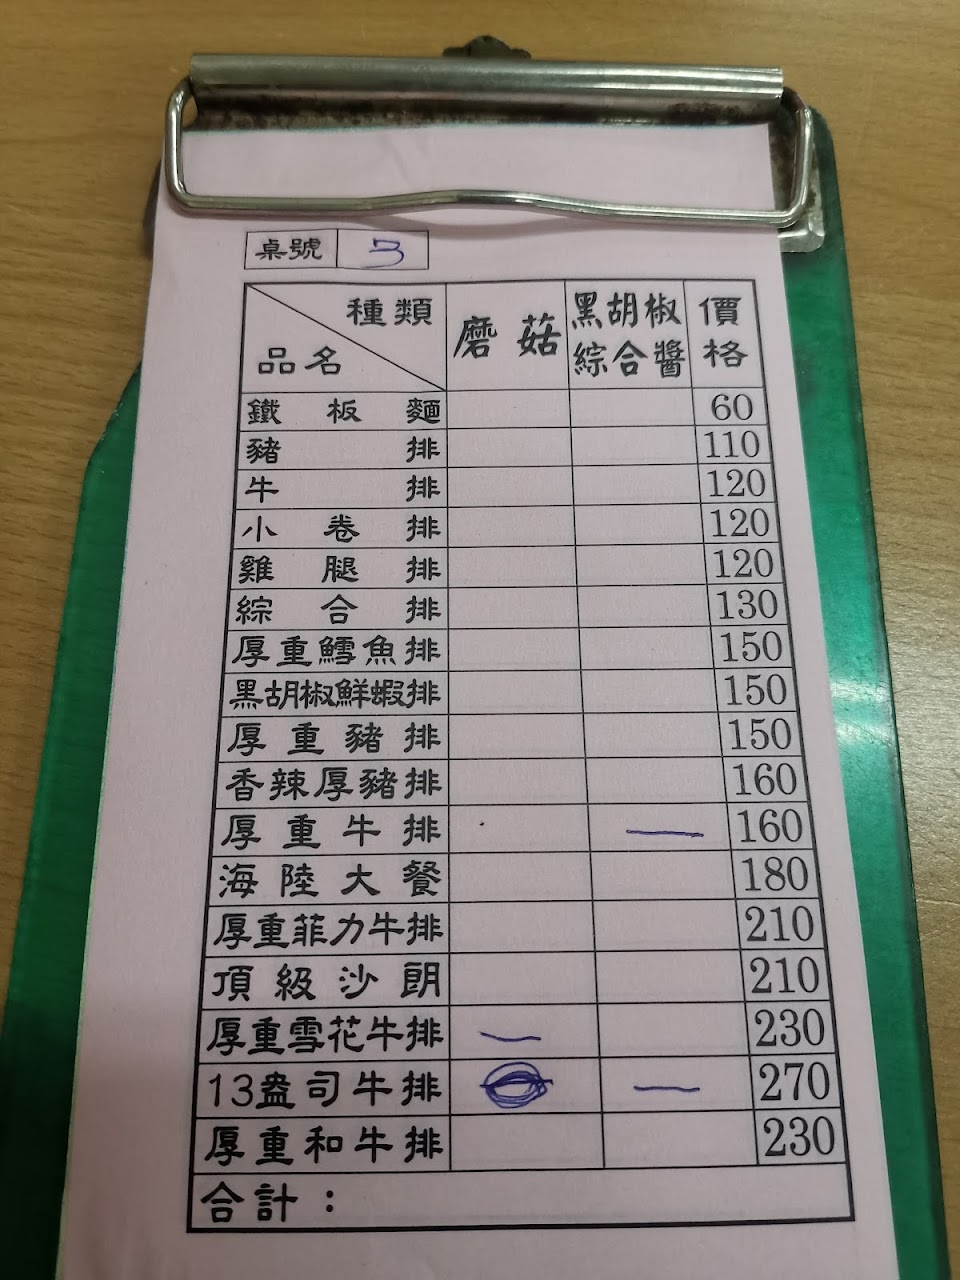 桌號 3
種類 品名 蘑菇 黑胡椒綜合醬 價格
鐵板麵 60
豬排 110
牛排 120
小卷排 120
雞腿排 120
綜合排 130
厚重鱈魚排 150
黑胡椒鮮蝦排 150
厚重豬排 150
香辣厚豬排 160
厚重牛排 一 160
海陸大餐 180
厚重菲力牛排 210
頂級沙朗 210
厚重雪花牛排 一 230
13盎司牛排 一 270
厚重和牛排 230
合計：